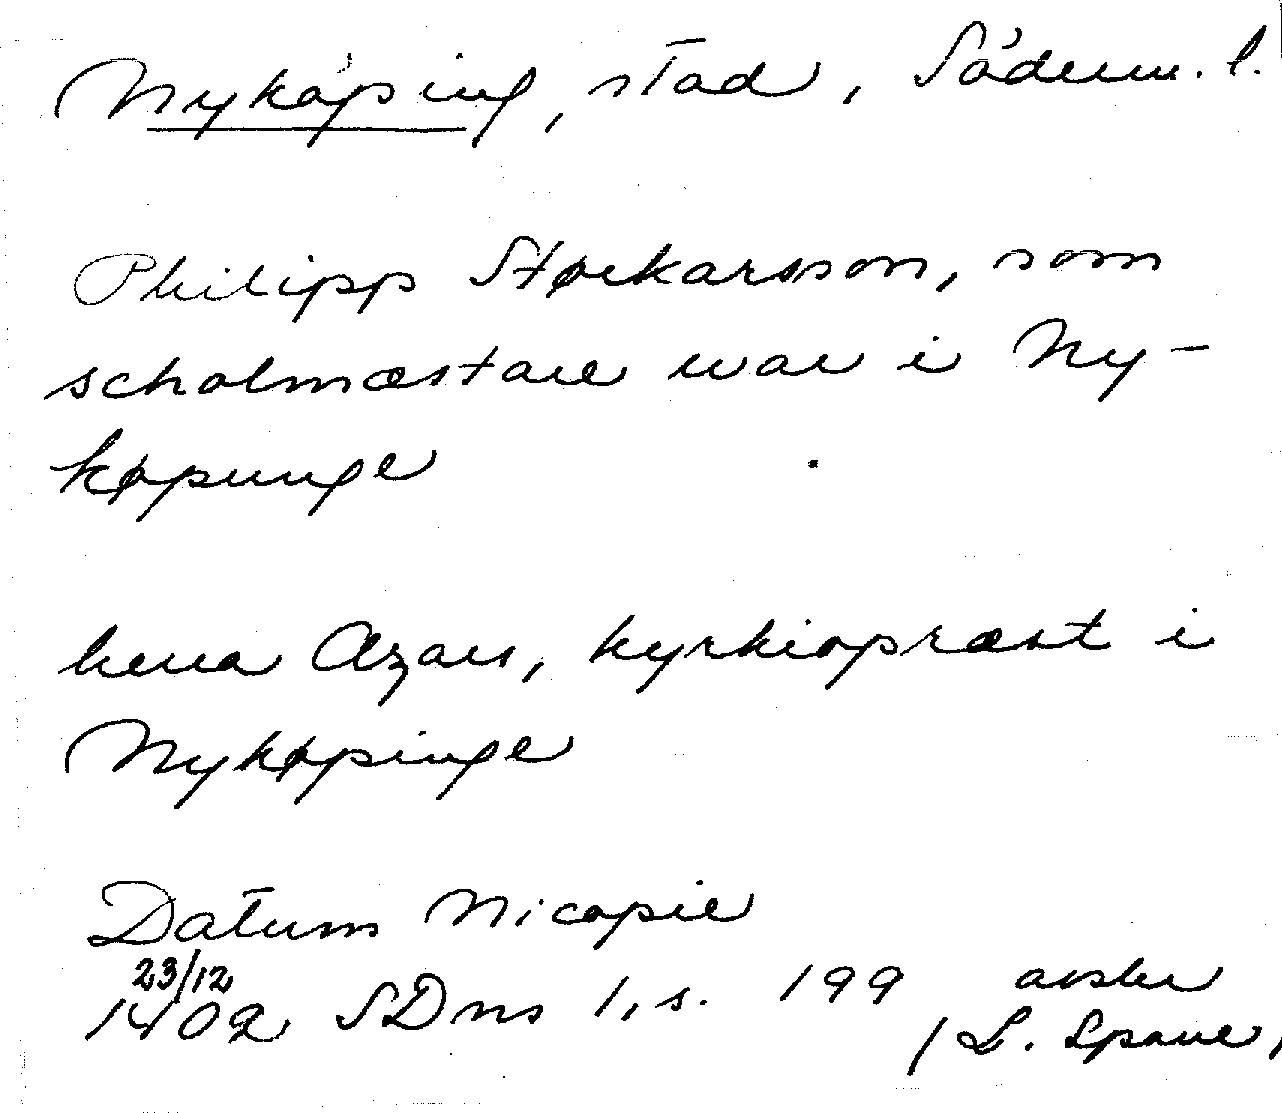 Nyköping, stad, Söderm. l.
Philipp Størkarsson, som
scholmæstare war i Ny-
køpunge
herra Azars, kyrkiopræst i
Nykøpinge
Datum Nicopie
23/12
1402 SDns 1, s. 199 avskr
/ L. Spane /